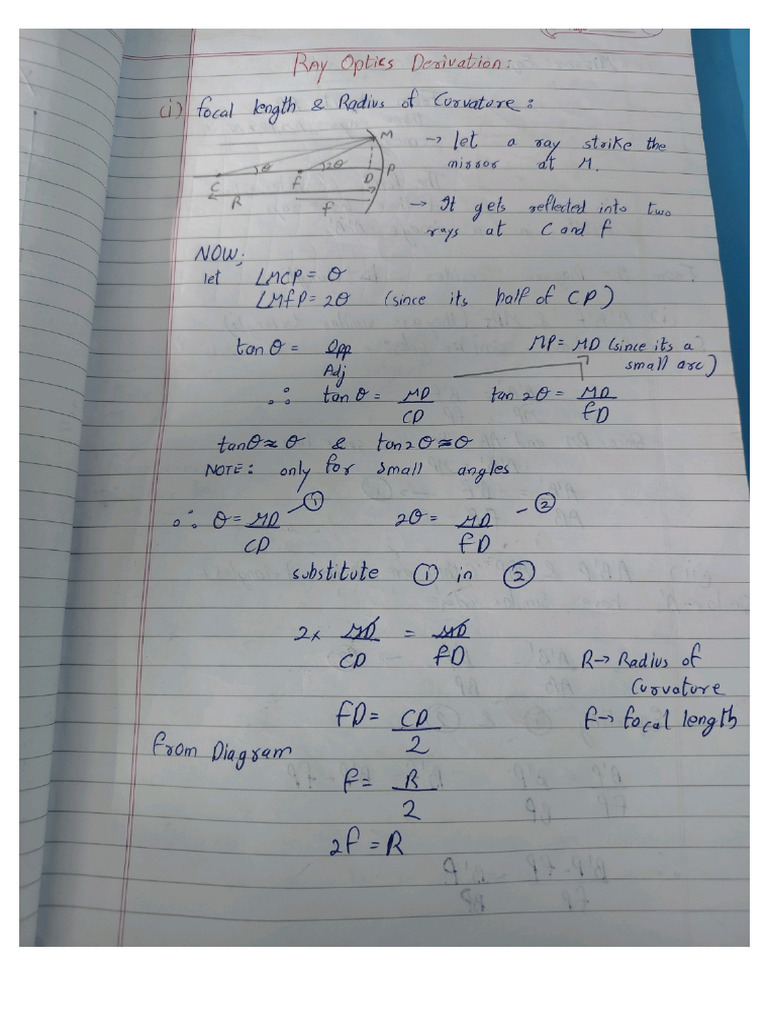 Ray Optics Derivation:
(i) focal length & Radius of Curvature:
M
θ 2θ
C F D P
R
f
→ let a ray strike the
mirror at M.
→ It gets reflected into two
rays at C and f
NOW;
let ∠MCP = θ
∠MfP = 2θ (since its half of CP)
tan θ = Opp
Adj
MP = MD (since its a
small arc)
∴ tan θ = MD tan 2θ = MD
CD fD
tanθ ≈ θ & tan2θ ≈ θ
NOTE: only for small angles
∴ θ = MD – ① 2θ = MD – ②
CD fD
substitute ① in ②
2 × MD = MD
CD fD
R → Radius of
Curvature
fD = CD
2
f → focal length
from Diagram
f = R
2
2f = R